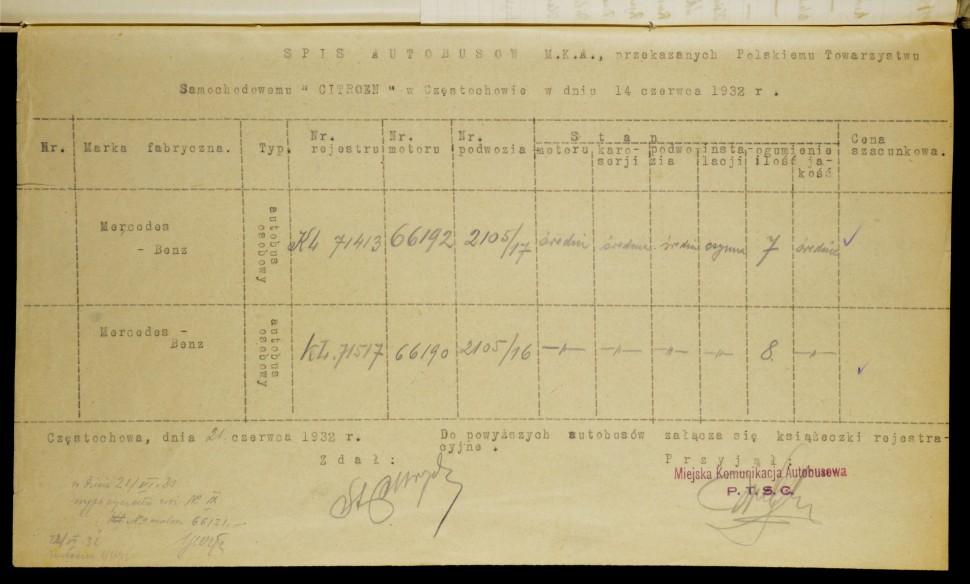 SPIS AUTOBUSÓW M.K.A., przekazanych Polskiemu Towarzystwu
Samochodowemu "CITROEN" w Częstochowie w dniu 14 czerwca 1932 r.
Nr. Marka fabryczna. Typ. Nr. rejestru Nr. motoru Nr. podwozia Stan motoru karo-serji podwo-zia insta-lacji ogumienie ilość ja-kość Cena szacunkowa.
Mercedes - Benz autobus osobowy Kł. 71413 66192 2105/17 średni średnie średni czynna 7 średnie
Mercedes - Benz autobus osobowy Kł. 71517 66190 2105/16 -"- -"- -"- -"- 8. -"-
Częstochowa, dnia 21. czerwca 1932 r. Do powyższych autobusów załącza się książeczki rejestra-
cyjne.
Zdał: Przyjął:
Miejska Komunikacja Autobusowa
P.T.S.C.